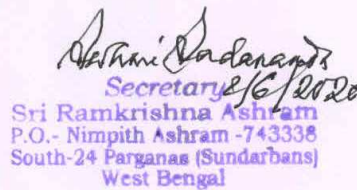 Secretary 2/6/2020
Sri Ramkrishna Ashram
P.O.- Nimpith Ashram -743338
South-24 Parganas (Sundarbans)
West Bengal